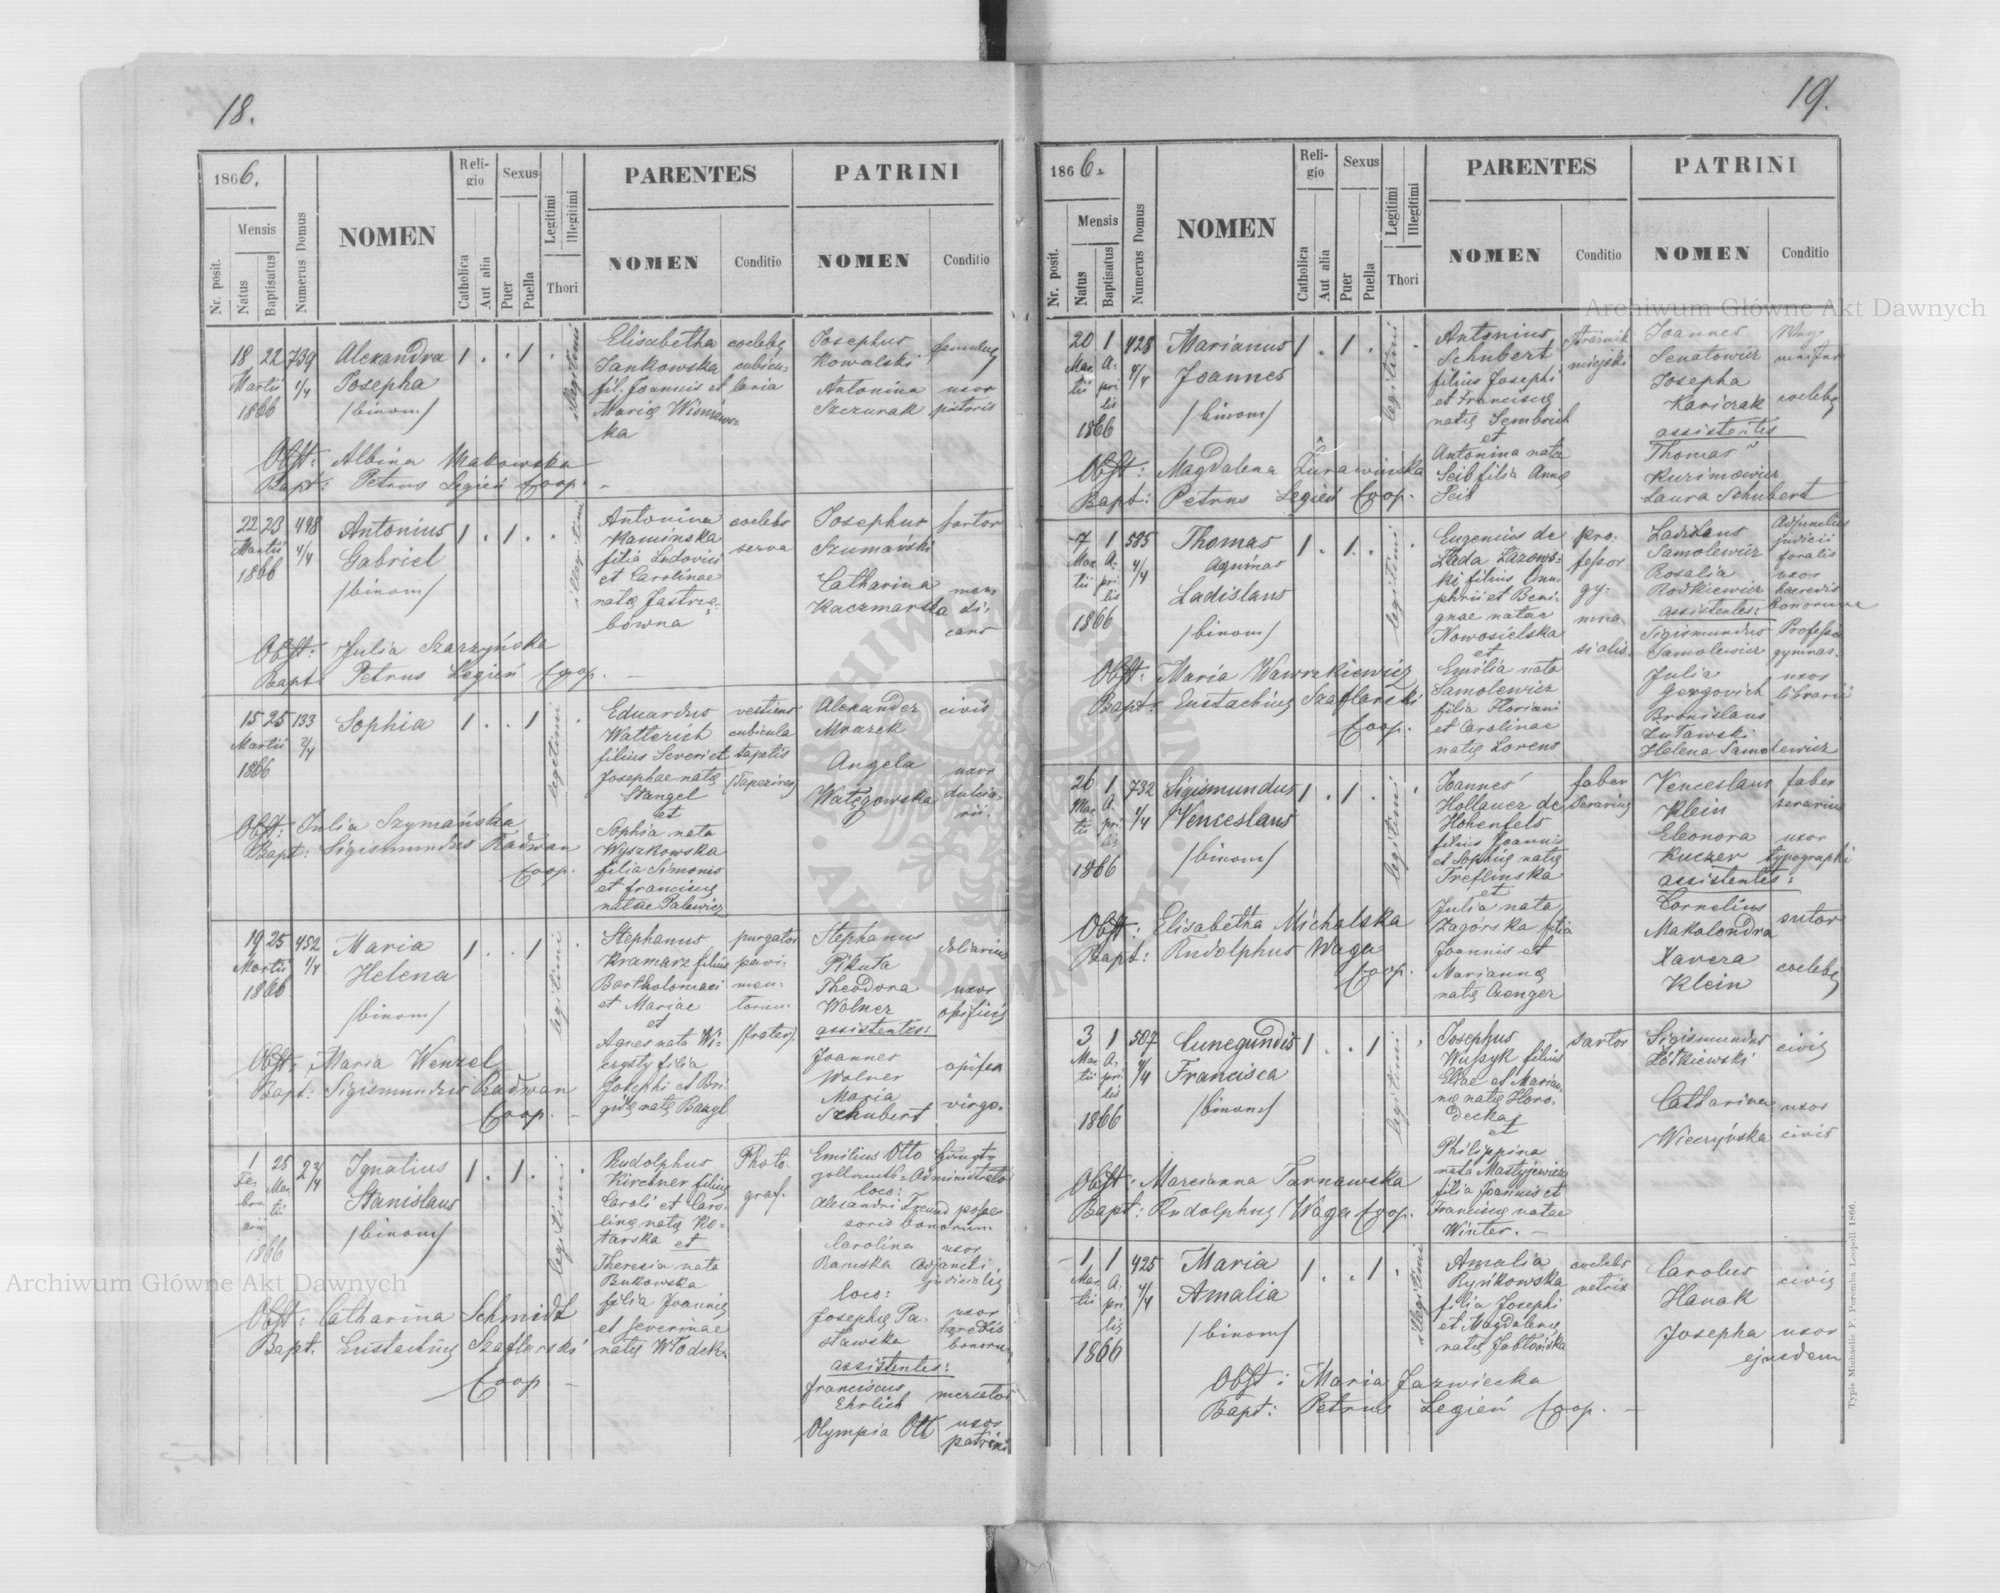 18.
1866.
Nr. posit.
Mensis
Natus
Baptisatus
Numerus Domus
NOMEN
Religio
Catholica
Aut alia
Sexus
Puer
Puella
Legitimi
Illegitimi
Thori
PARENTES
NOMEN
Conditio
PATRINI
NOMEN
Conditio
18 22 739
Martii 1/4
1866
Alexandra
Josepha
/binom/
1 . . 1 .
illegitimi
Elisabetha
Jankowska
fil. Joannis et
Marię Wiśniows-
ka
coelebs
cubicu-
laria
Josephus
Kowalski
Antonina
Szczurak
famulus
uxor
pistoris
Obst: Albina Makowska
Bapt: Petrus Legień Coop. -
22 23 498
Martii 4/4
1866
Antonius
Gabriel
/binom/
1 . 1 . .
illegitimi
Antonina
Kamińska
filia Ludovici
et Carolinae
natę Jastrzę-
bówna
coelebs
serva
Josephus
Szumański
Catharina
Kaczmarska
sartor
men
di-
cans
Obst: Julia Szarzyńska
Bapt: Petrus Legień Coop. -
15 25 133
Martii 2/4
1866
Sophia
1 . . 1 .
legitimi
Eduardus
Watterich
filius Severi et
Josephae natę
Stangel
et
Sophia nata
Wyszkowska
filia Simonis
et Franciscę
natae Palewicz
vestiens
cubicula
tapetis
(Tapezirer)
Alexander
Mrazek
Angela
Watęgowska
civis
uxor
dulcia-
rii.
Obst: Julia Szymańska
Bapt: Sigismundus Radwan
Coop.
19 25 452
Martii 1/4
1866
Maria
Helena
/binom/
1 . . 1 .
legitimi
Stephanus
Kramarz filius
Bartholomaei
et Mariae
et
Agnes nata Wi-
czysty filia
Josephi et Bri
gitę natę Bazyl
purgator
pavi-
men-
torum
/frater/.
Stephanus
Pikuta
Theodora
Wolner
assistentes:
Joannes
Wolner
Maria
Schubert
doliarius
uxor
opificis
opifex
virgo.
Obst: Maria Wenzel
Bapt: Sigismundus Radwan
Coop. -
1 25 2 3/4
Fe- Mar
bru- tii
arii
1866
Ignatius
Stanislaus
/binom/
1 . 1 . .
legitimi
Rudolphus
Kirchner filius
Caroli et Caro-
linę natę Ko-
tarska et
Theresia nata
Bukowska
filia Joannis
et Severinae
natę Włodek
Photo-
graf.
Emilius Otto
Administrator
loco:
Alexandri Freund posses
soris bonorum.
Carolina uxor
Ramska Adjuncti
judicialis
loco:
Josephę Pa-
stawska
uxor
hęredis
bonorum
assistentes:
Franciscus
Ehrlich
mercator
Olympia Ott
uxor
patrini
Obst: Catharina Schmidt
Bapt. Eustachius Szaflarski
Coop. -
19.
1866.
Nr. posit.
Mensis
Natus
Baptisatus
Numerus Domus
NOMEN
Religio
Catholica
Aut alia
Sexus
Puer
Puella
Legitimi
Illegitimi
Thori
PARENTES
NOMEN
Conditio
PATRINI
NOMEN
Conditio
20 1 428
Mar A- 4/4
tii pri
lis
1866
Marianus
Joannes
/binom/
1 . 1 . .
legitimi
Antonius
Schubert
filius Josephi
et Franciscę
natę Sembrich
et
Antonina nata
Seib filia Annę
Seib
Strażnik
miejski
Joannes
Senatowicz
Josepha
Kariczak
coelebs
assistentes
Thomas
Kurimowicz
Laura Schubert
Obst: Magdalena Żurawińska
Bapt: Petrus Legień Coop.
7 1 585
Mar A- 4/4
tii pri
lis
1866
Thomas
Aquinas
Ladislaus
/binom/
1 . 1 . .
legitimi
Eugenius de
Łada Łazows-
ki, filius Onu-
phrii et Beni-
gnae natae
Nowosielska
et
Emilia nata
Samolewicz
filia Floriani
et Carolinae
natę Lorens
pro-
fessor
gy-
mna-
sialis.
Ladislaus
Samolewicz
Rosalia
Rodkiewicz
assistentes:
Sigismundus
Samolewicz
Julia
Gergovich
Bronislaus
Żuławski
Helena Samolewicz
Adjunctus
judicii
foralis
uxor
haeredis
bonorum
Professor
gymnas.
uxor
librarii
Obst: Maria Wawrzkiewicz
Bapt: Eustachius Szaflarski
Coop.
26 1 732
Mar A- 1/4
tii pri
lis
1866
Sigismundus
Venceslaus
/binom/
1 . 1 . .
legitimi
Joannes
Hollauer de
Hohenfels
filius Joannis
et Sophię natę
Treflinska
et
Julia nata
Zagórska filia
Joannis et
Mariannę
natę Czenger
faber
serarius
Venceslaus
Klein
Eleonora
Kuczer
assistentes:
Cornelius
Makolondra
Xavera
Klein
faber
serarius
uxor
typographi
sutor
coelebs
Obst: Elisabetha Michalska
Bapt: Rudolphus Waga
Coop.
3 1 507
Mar A- 4/4
tii pri
lis
1866
Cunegundis
Francisca
/binom/
1 . . 1 .
legitimi
Josephus
Wujzyk filius
Eliae et Marian-
nę natę Horo-
decka
et
Philippina
nata Mastyjewicz
filia Joannis et
Franciscę natae
Winter. -
sartor
Sigismundus
Żółkiewski
Catharina
Wieczyńska
civis
uxor
civis
Obst: Marcianna Tarnawska
Bapt: Rudolphus Waga Coop.
1 1 425
Mar A- 4/4
tii pri
lis
1866
Maria
Amalia
/binom/
1 . . 1 .
illegitimi
Amalia
Rynkowska
filia Josephi
et Magdalenę
natę Jabłońska
coelebs
netrix
Carolus
Hanak
Josepha
civis
uxor
ejusdem
Obst: Maria Jazwiecka
Bapt: Petrus Legień Coop. -
Typis Michaelis F. Poremba Leopoli 1866.
Archiwum Główne Akt Dawnych
Archiwum Główne Akt Dawnych
ARCHIWUM GŁÓWNE AKT DAWNYCH